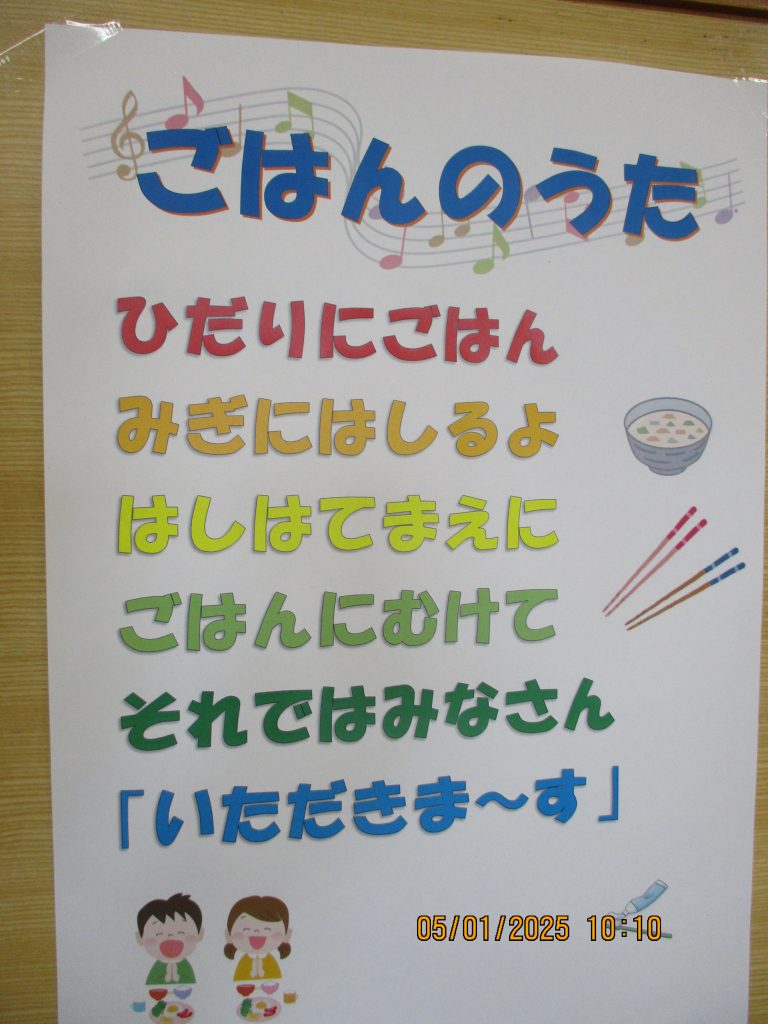 ごはんのうた
ひだりにごはん
みぎにはしるよ
はしはてまえに
ごはんにむけて
それではみなさん
「いただきま～す」
05/01/2025 10:10